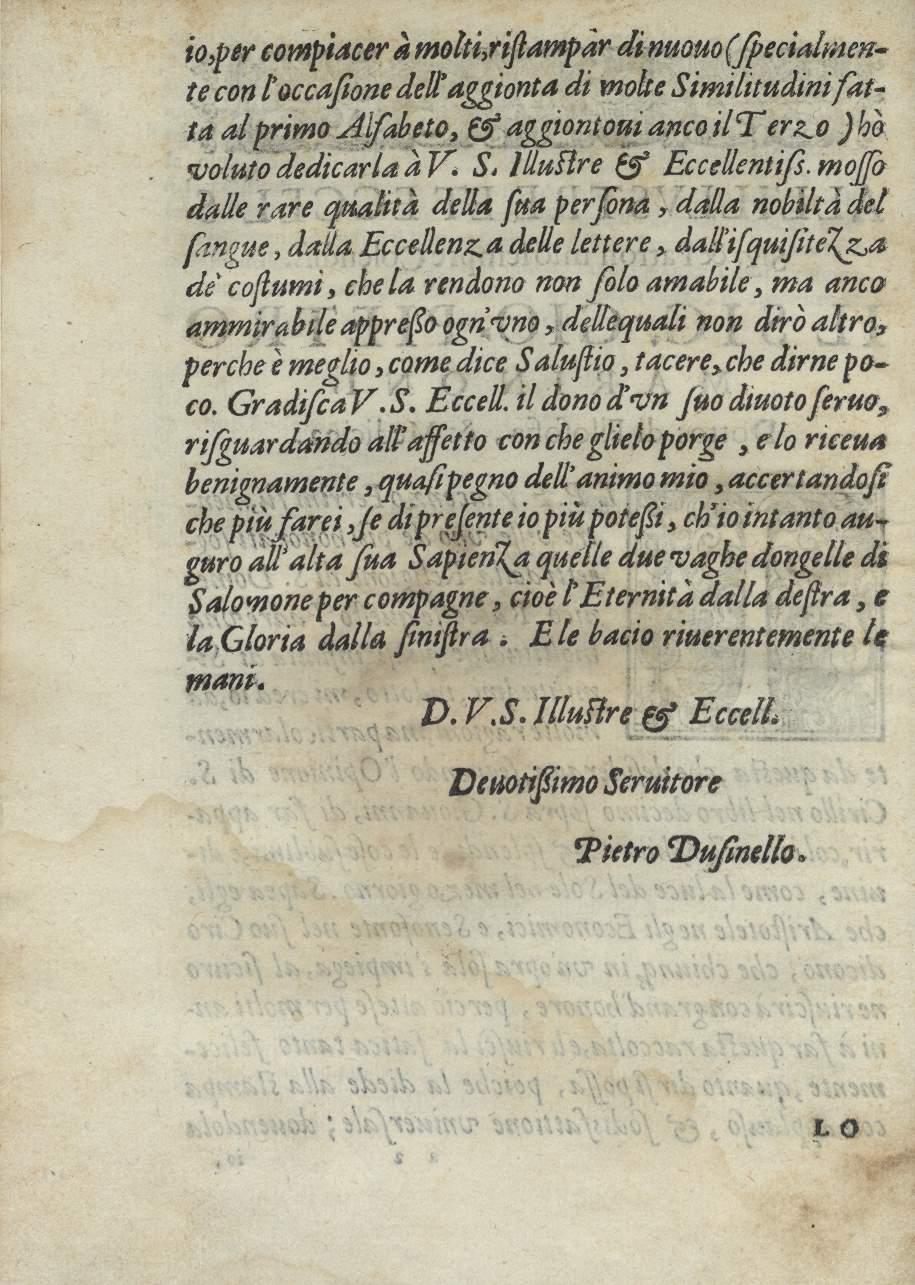 io,per compiacer à molti,riſtampar di nuouo (ſpecialmen-
te con l'occaſione dell'aggionta di molte Similitudini fat-
ta al primo Alfabeto, & aggiontoui anco il Terzo) hò
voluto dedicarla à V. S. Illuſtre & Eccellentiſs. moſſo
dalle rare qualità della ſua perſona, dalla nobiltà del
ſangue, dalla Eccellenza delle lettere, dall'iſquiſitezza
de' coſtumi, che la rendono non ſolo amabile, ma anco
ammirabile appreßo ogn'vno, dellequali non dirò altro,
perche è meglio, come dice Saluſtio, tacere, che dirne po-
co. Gradiſca V.S. Eccell. il dono d'vn ſuo diuoto ſeruo,
riſguardando all'affetto con che glielo porge, e lo riceua
benignamente, quaſi pegno dell'animo mio, accertandoſi
che più farei, ſe di preſente io più poteßi, ch'io intanto au-
guro all'alta ſua Sapienza quelle due vaghe dongelle di
Salomone per compagne, cioè l'Eternità dalla deſtra, e
la Gloria dalla ſiniſtra. E le bacio riuerentemente le
mani.
D. V. S. Illuſtre & Eccell.
Deuotißimo Seruitore
Pietro Duſinello.
LO